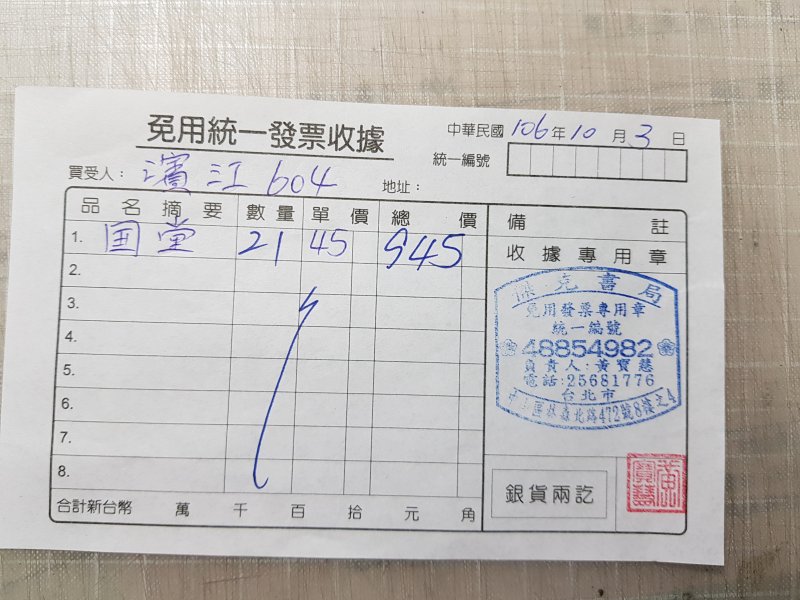 免用統一發票收據
中華民國 106 年 10 月 3 日
統一編號
買受人： 濱江 604 地址：
品名摘要 數量 單價 總價 備註
1. 国堂 21 45 945 收據專用章
2.
3.
4.
5.
6.
7.
8.
克書局
免用發票專用章
統一編號
48854982
負責人：黃寶慧
電話：25681776
台北市
中山區林森北路472號8樓之4
銀貨兩訖
黃寶慧
合計新台幣 萬 千 百 拾 元 角